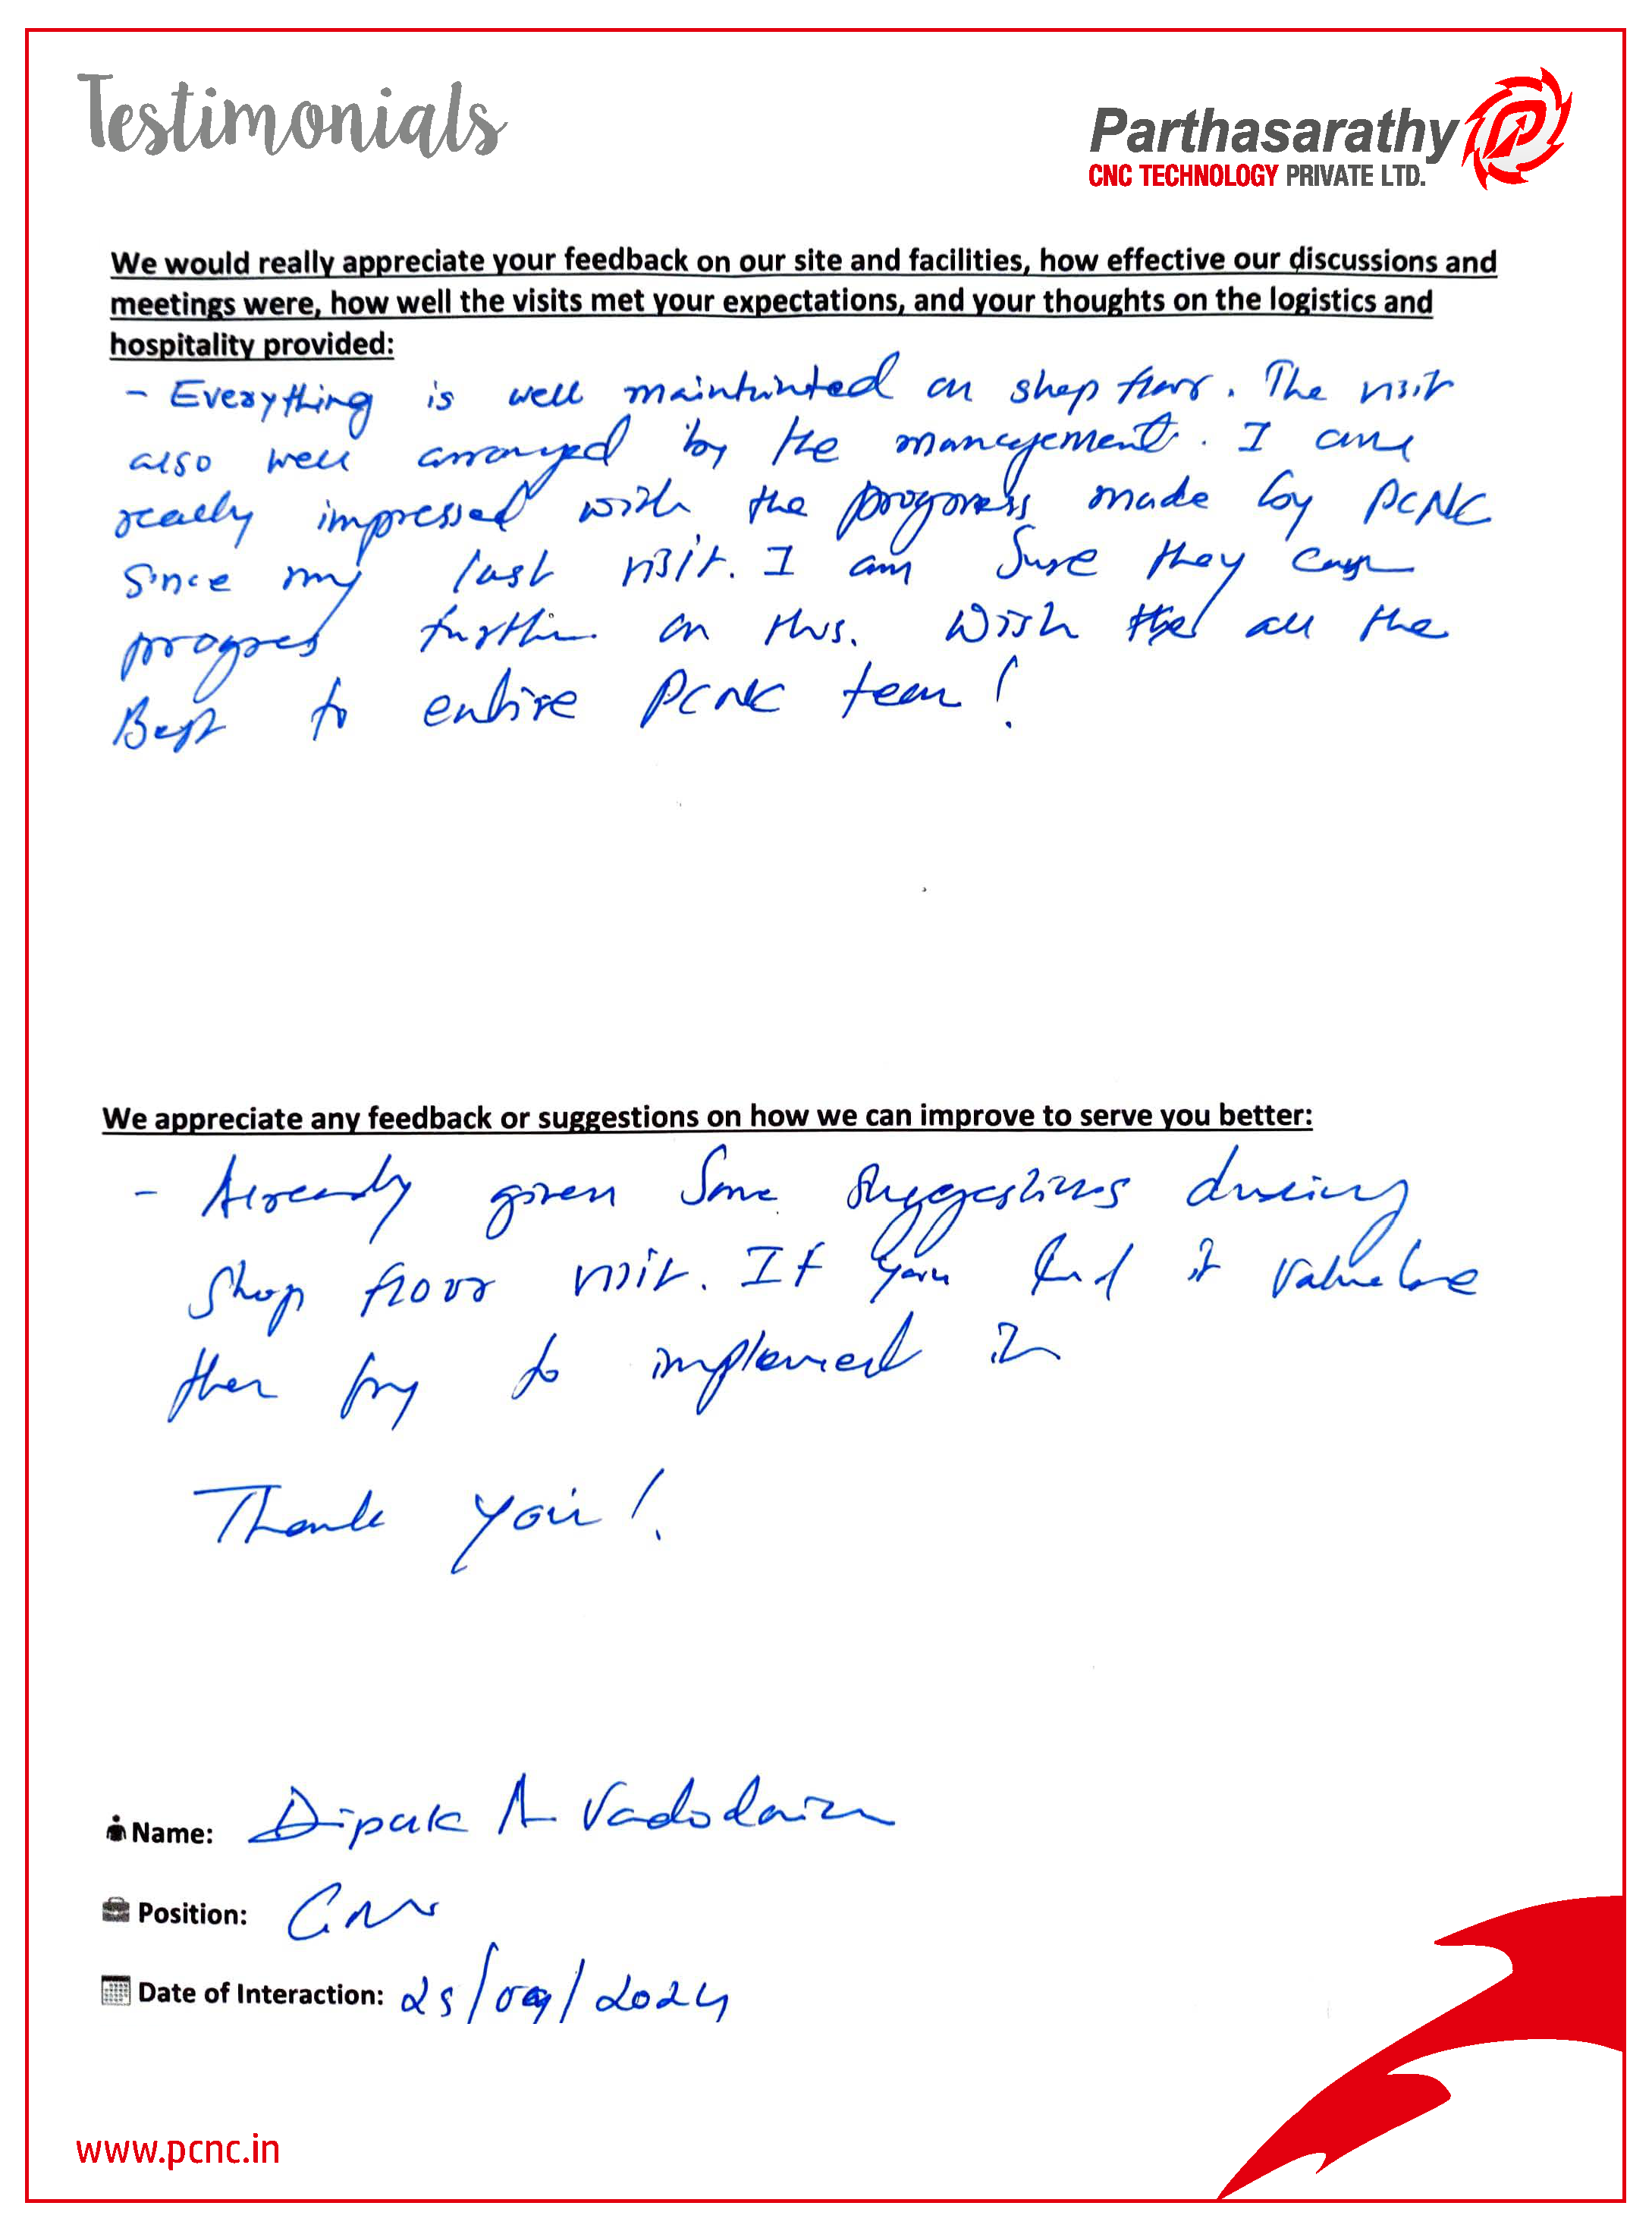 Testimonials
Parthasarathy
CNC TECHNOLOGY PRIVATE LTD.
We would really appreciate your feedback on our site and facilities, how effective our discussions and
meetings were, how well the visits met your expectations, and your thoughts on the logistics and
hospitality provided:
- Everything is well maintainted on shop floor. The visit
also well arranged by the management. I am
really impressed with the progress made by PCNC
Since my last visit. I am Sure they can
progres further on this. Wish all the
Best to entire PCNC team!
We appreciate any feedback or suggestions on how we can improve to serve you better:
- Already given Some Suggestions during
Shop floor visit. If you find it valuable
then try to implement it
Thank you!
Name: Dipak A Vadodariya
Position:
Date of Interaction: 25/09/2024
www.pcnc.in